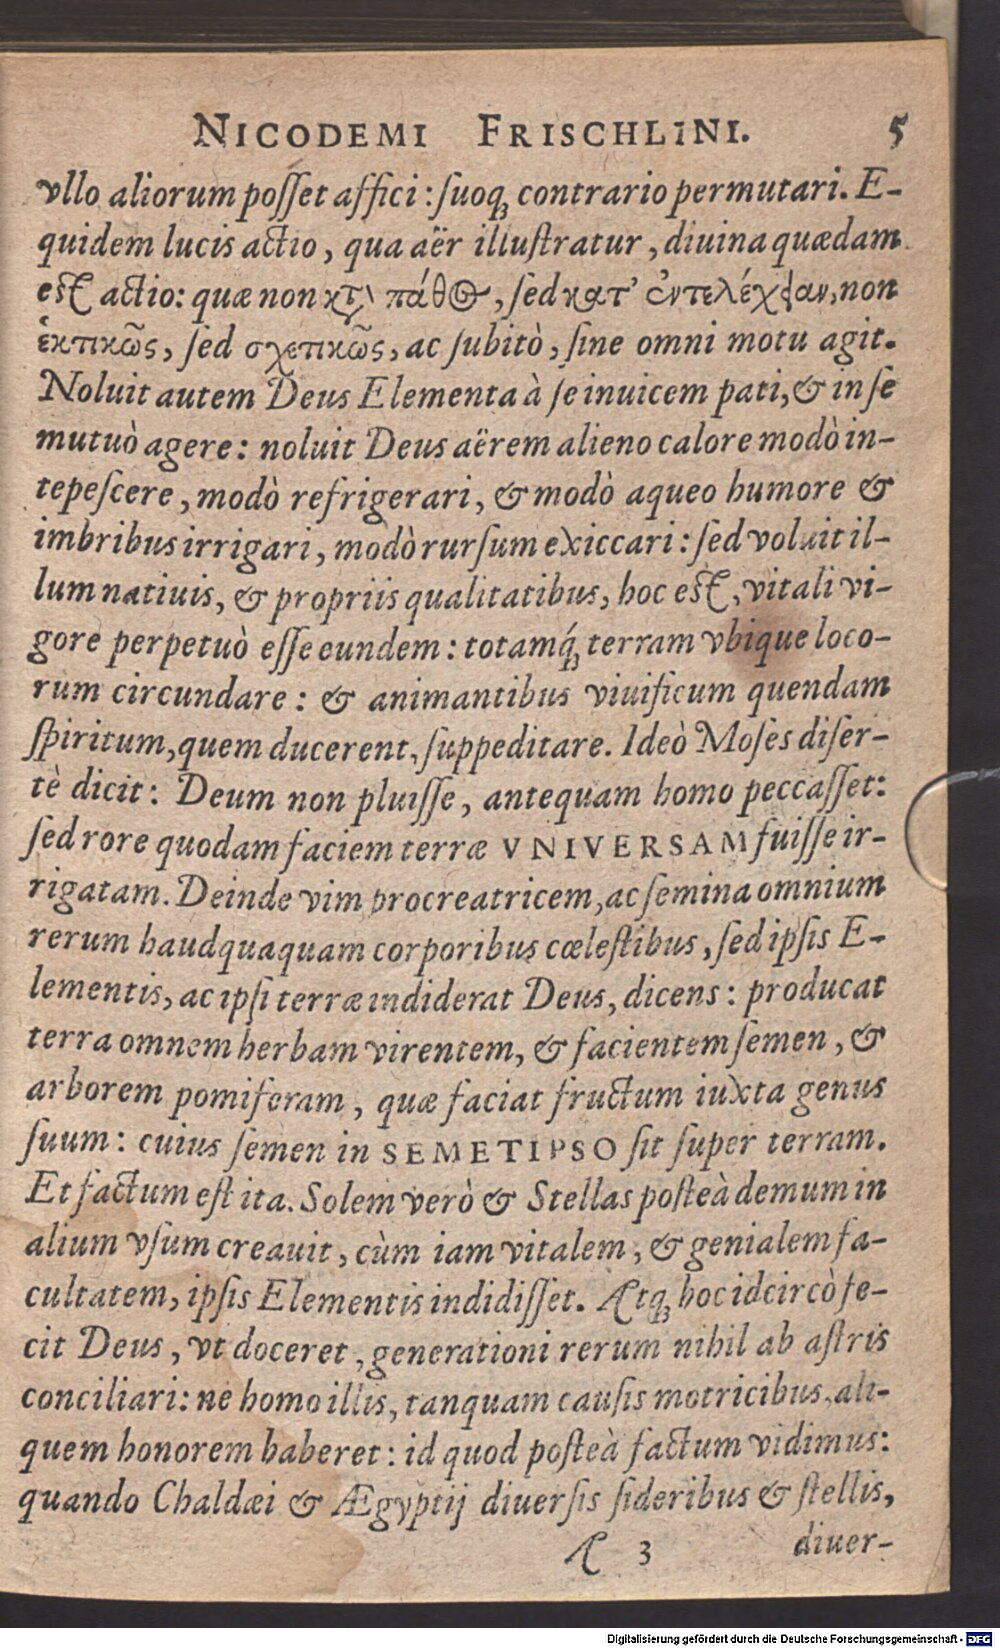 NICODEMI FRISCHLINI. 5
vllo aliorum poſſet affici: ſuoq́; contrario permutari. E-
quidem lucis actio, qua aër illuſtratur, diuina quædam
eſt actio: quæ non κτ̀ πάθ⊙, ſed κατ' ἐντελέχειαν, non
ἑκτικῶς, ſed σχετικῶς, ac ſubitò, ſine omni motu agit.
Noluit autem Deus Elementa à ſe inuicem pati, & in ſe
mutuò agere: noluit Deus aërem alieno calore modò in-
tepeſcere, modò refrigerari, & modò aqueo humore &
imbribus irrigari, modò rurſum exiccari: ſed voluit il-
lum natiuis, & propriis qualitatibus, hoc eſt, vitali vi-
gore perpetuò eſſe eundem: totamq́; terram vbique loco-
rum circundare: & animantibus viuificum quendam
ſpiritum, quem ducerent, ſuppeditare. Ideò Moſes diſer-
tè dicit: Deum non pluiſſe, antequam homo peccaſſet:
ſed rore quodam faciem terræ VNIVERSAM fuiſſe ir-
rigatam. Deinde vim procreatricem, ac ſemina omnium
rerum haudquaquam corporibus cœleſtibus, ſed ipſis E-
lementis, ac ipſi terræ indiderat Deus, dicens: producat
terra omnem herbam virentem, & facientem ſemen, &
arborem pomiferam, quæ faciat fructum iuxta genus
ſuum: cuius ſemen in SEMETIPSO ſit ſuper terram.
Et factum eſt ita. Solem verò & Stellas poſteà demum in
alium vſum creauit, cùm iam vitalem, & genialem fa-
cultatem, ipſis Elementis indidiſſet. Atq; hoc idcircò fe-
cit Deus, vt doceret, generationi rerum nihil ab aſtris
conciliari: ne homo illis, tanquam cauſis motricibus, ali-
quem honorem haberet: id quod poſteà factum vidimus:
quando Chaldæi & Ægyptij diuerſis ſideribus & ſtellis,
A 3 diuer-
Digitalisierung gefördert durch die Deutsche Forschungsgemeinschaft - DFG